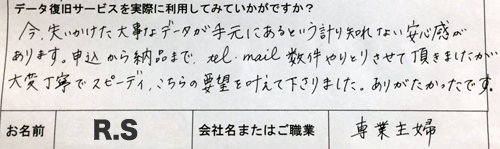 データ復旧サービスを実際に利用してみていかがですか？
今、失いかけた大事なデータが手元にあるという計り知れない安心感が
あります。申込から納品まで、tel・mail数件やりとりさせて頂きましたが
大変丁寧でスピーディ、こちらの要望を叶えて下りました。ありがたかったです。
お名前 R.S 会社名またはご職業 専業主婦